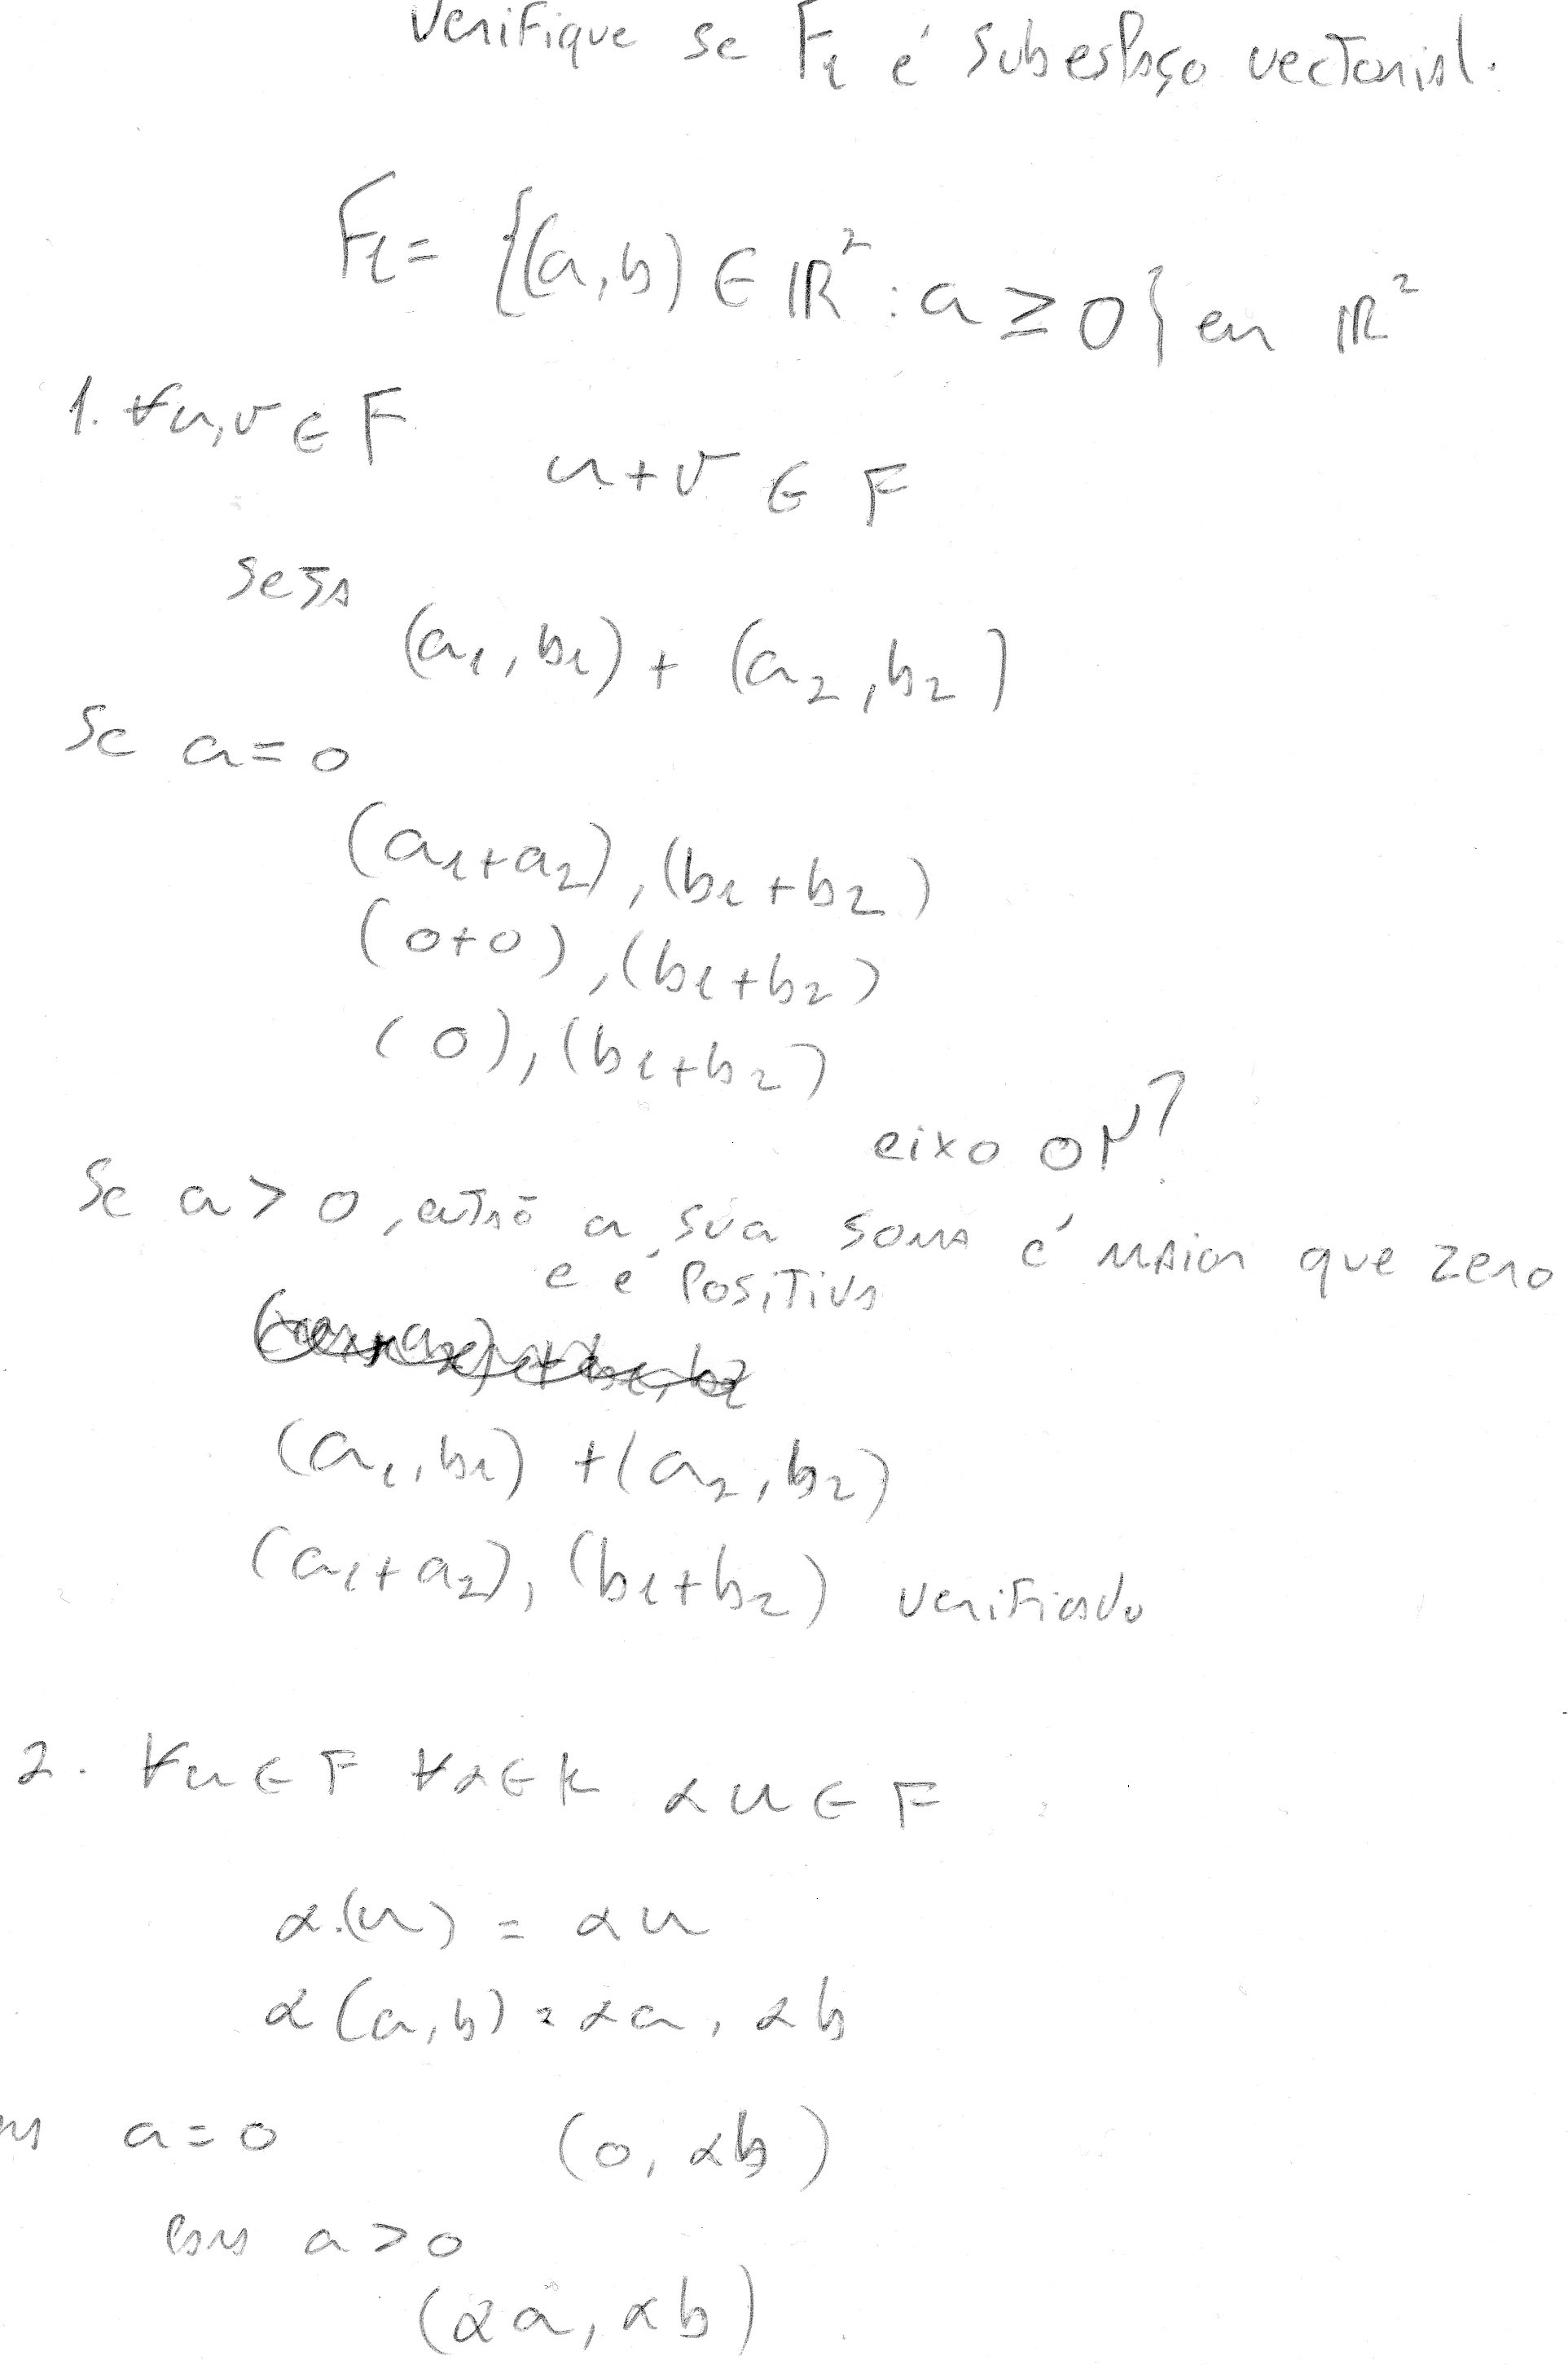 Verifique se F₁ é subespaço vectorial.
F₁ = {(a,b) ∈ ℝ² : a ≥ 0} em ℝ²
1. ∀u,v ∈ F u+v ∈ F
seja
(a₁,b₁) + (a₂,b₂)
se a=0
(a₁+a₂),(b₁+b₂)
(0+0),(b₁+b₂)
(0),(b₁+b₂)
eixo OY?
Se a>0, então a sua soma é maior que zero
e é positiva
(a₁,b₁) + (a₂,b₂)
(a₁+a₂),(b₁+b₂) verificado
2. ∀u ∈ F ∀α ∈ K αu ∈ F
α.(u) = αu
α(a,b) = αa, αb
a=0 (0,αb)
com a>0
(αa,αb)